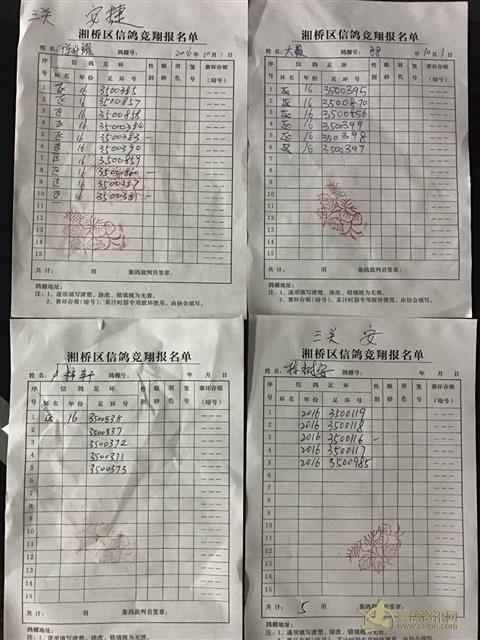 三关 安捷
湘桥区信鸽竞翔报名单
姓名: 鸽棚号: 2016年10月1日
序号 信鸽足环 性别 眼砂 羽色 签号 赛环存根(暗号)
环名 年份 足环号
1 区 16 3500385
2 区 16 3500857
3 区 16 3500858
4 区 16 3500384
5 区 16 3500383
6 区 16 3500390
7 区 16 3500859
8 区 16 3500860
9 区 16 3500387
10 区 16 3500381
11
12
13
14
15
共计: 羽 集鸽裁判员签章:
鸽棚地址:
注:1、逐项填写清楚,涂改、错填视为无效。
2、赛环存根(暗号),系计时器专用胶环使用,由协会填写。
湘桥区信鸽竞翔报名单
姓名: 鸽棚号: 年10月1日
序号 信鸽足环 性别 眼砂 羽色 签号 赛环存根(暗号)
环名 年份 足环号
1 区 16 3500395
2 区 16 3500870
3 区 16 3500856
4 区 16 350399
5 区 16 350398
6 区 16 3500397
7
8
9
10
11
12
13
14
15
共计: 羽 集鸽裁判员签章:
鸽棚地址:
注:1、逐项填写清楚,涂改、错填视为无效。
2、赛环存根(暗号),系计时器专用胶环使用,由协会填写。
湘桥区信鸽竞翔报名单
姓名: 鸽棚号: 年 月 日
序号 信鸽足环 性别 眼砂 羽色 签号 赛环存根(暗号)
环名 年份 足环号
1 区 16 3500838
2 3500837
3 3500372
4 3500371
5 3500373
6
7
8
9
10
11
12
13
14
15
共计: 羽 集鸽裁判员签章:
鸽棚地址:
注:1、逐项填写清楚,涂改、错填视为无效。
三关 安
湘桥区信鸽竞翔报名单
姓名: 鸽棚号: 年 月 日
序号 信鸽足环 性别 眼砂 羽色 签号 赛环存根(暗号)
环名 年份 足环号
1 2016 3500119
2 2016 3500118
3 2016 3500116
4 2016 3500117
5 2016 3500985
6
7
8
9
10
11
12
13
14
15
共计: 5 羽 集鸽裁判员签章:
鸽棚地址:
注:1、逐项填写清楚,涂改、错填视为无效。